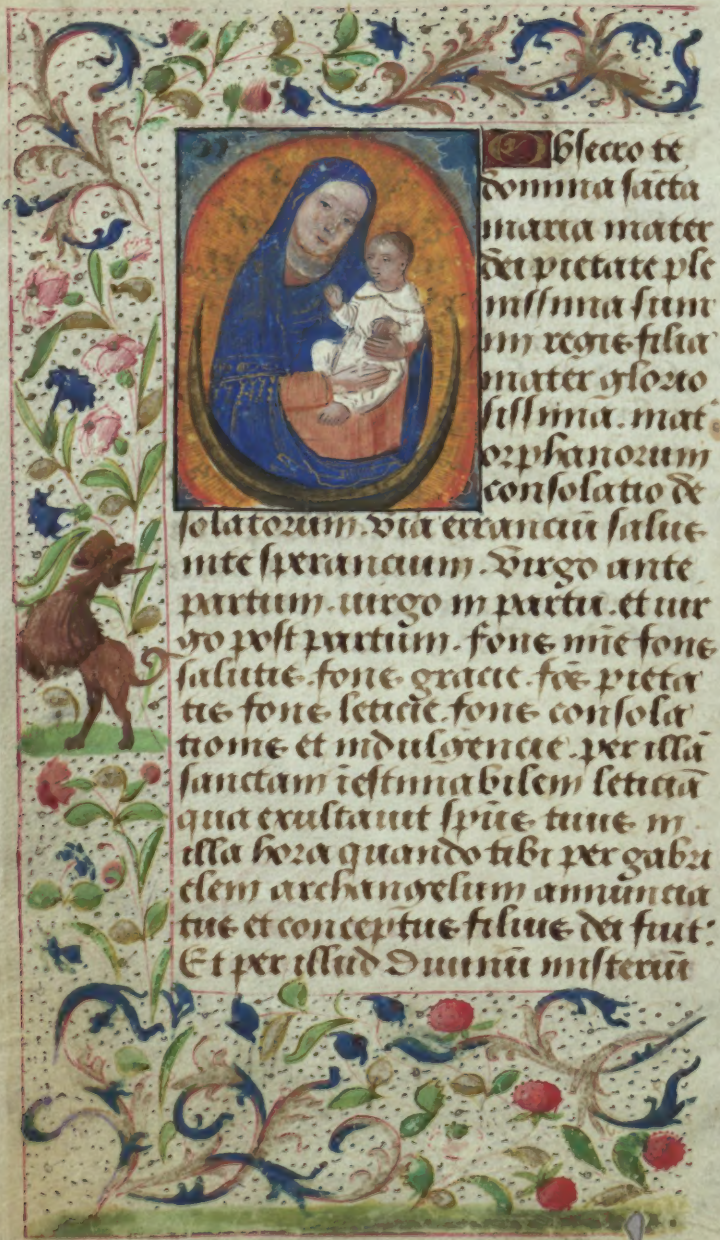 Obsecro te
domina sācta
maria mater
dei pietate ple
nissima sum
mi regis filia
mater glorio
sissima. mat̄
orphanorum
consolatio de
solatorum. via erranciū salus
in te sperancium. Virgo ante
partum. uirgo in partu. et uir
go post partum. fons mīe fons
salutis. fons gracie. fōs pieta
tis fons leticie. fons consola
tionis et indulgencie. per illā
sanctam īestimabilem leticiā
qua exultauit spūs tuus in
illa hora quando tibi per gabri
elem archangelum annuncia
tus et conceptus filius dei fuit:
Et per illud Diuinū misteriū